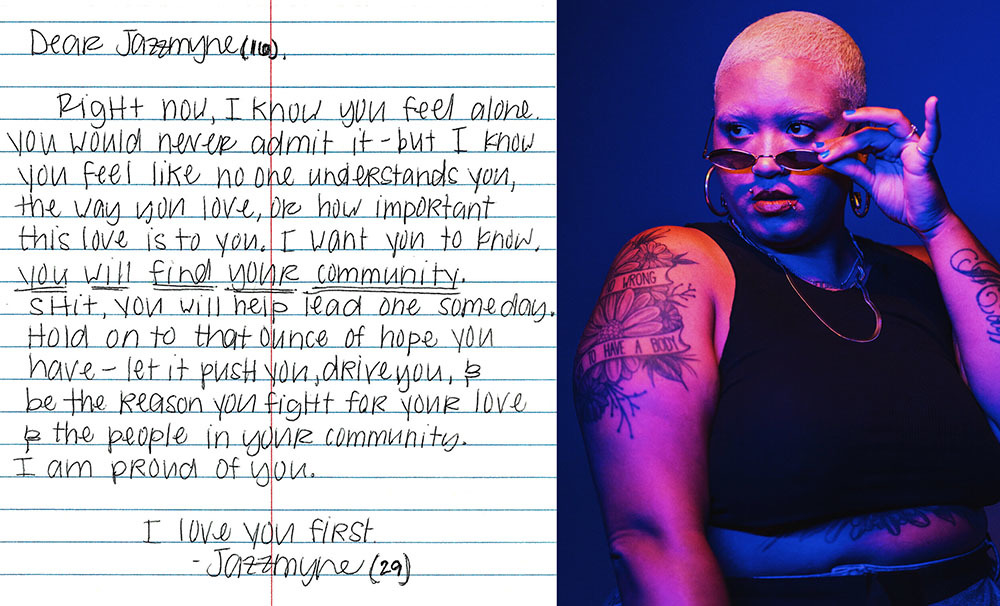 Dear Jazzmyne (16),
Right now, I know you feel alone.
you would never admit it - but I know
you feel like no one understands you,
the way you love, or how important
this love is to you. I want you to know,
you will find your community.
shit, you will help lead one someday.
Hold on to that ounce of hope you
have - let it push you, drive you, &
be the reason you fight for your love
& the people in your community.
I am proud of you.
I love you first
- Jazzmyne (29)
WRONG
TO HAVE A BODY